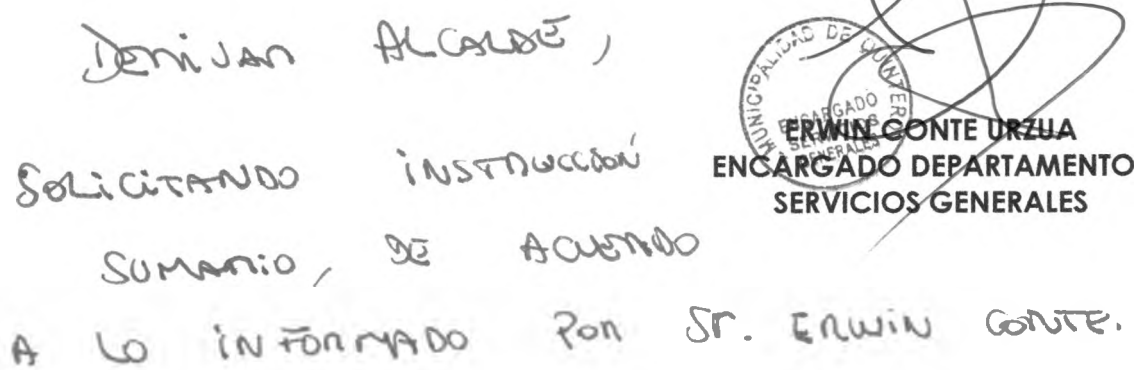 Derivar ALCALDE,
SOLICITANDO INSTRUCCION
SUMARIO, DE ACUERDO
A LO INFORMADO POR SR. ERWIN CONTE.
MUNICIPALIDAD DE QUINTERO
ENCARGADO
SERVICIOS
GENERALES
ERWIN CONTE URZUA
ENCARGADO DEPARTAMENTO
SERVICIOS GENERALES